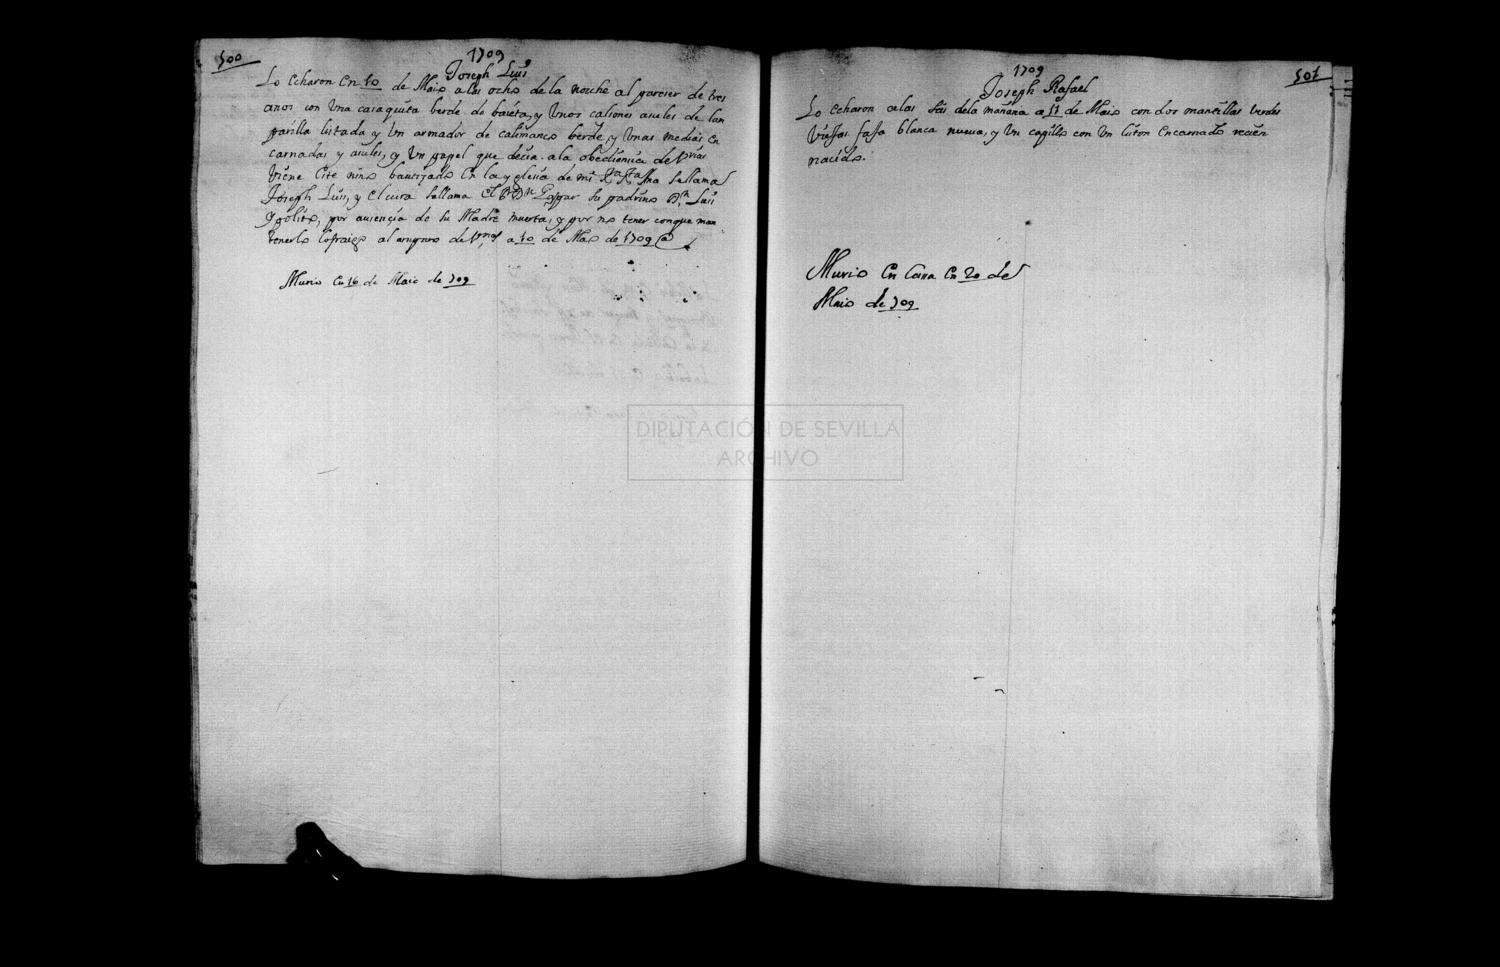 500
1709
Joseph Luis
Lo Echaron En 10 de Maio alas ocho de la noche al pareser de tres
anos con Una casaquita berde de baieta, y Unos calsones asules de lan
parilla listada y Un armador de calimanco berde, y Unas medias En
carnadas y asules, y Un papel que decia. ala obediencia de
Viene Este nino bautisado En la yglesia de sellama
Joseph Luis, y El cura sellama El Gaspar Su padrino Dn Luis
Ypolito, por ausencia de Su Madre muerta, y por no tener conque man
tenerlo lo traigo al amparo de Vmds a 10 de Maio de 1709
Murio En 16 de Maio de 709
1709
501
Joseph Rafael
Lo Echaron alas Seis dela mañana a 11 de Maio con dos mantillas berdes
Viejas faja blanca nueva, y Un capillo con Un Liston Encarnado resien
nacido.
Murio En Casa En 20 de
Maio de 709
DIPUTACIÓN DE SEVILLA
ARCHIVO